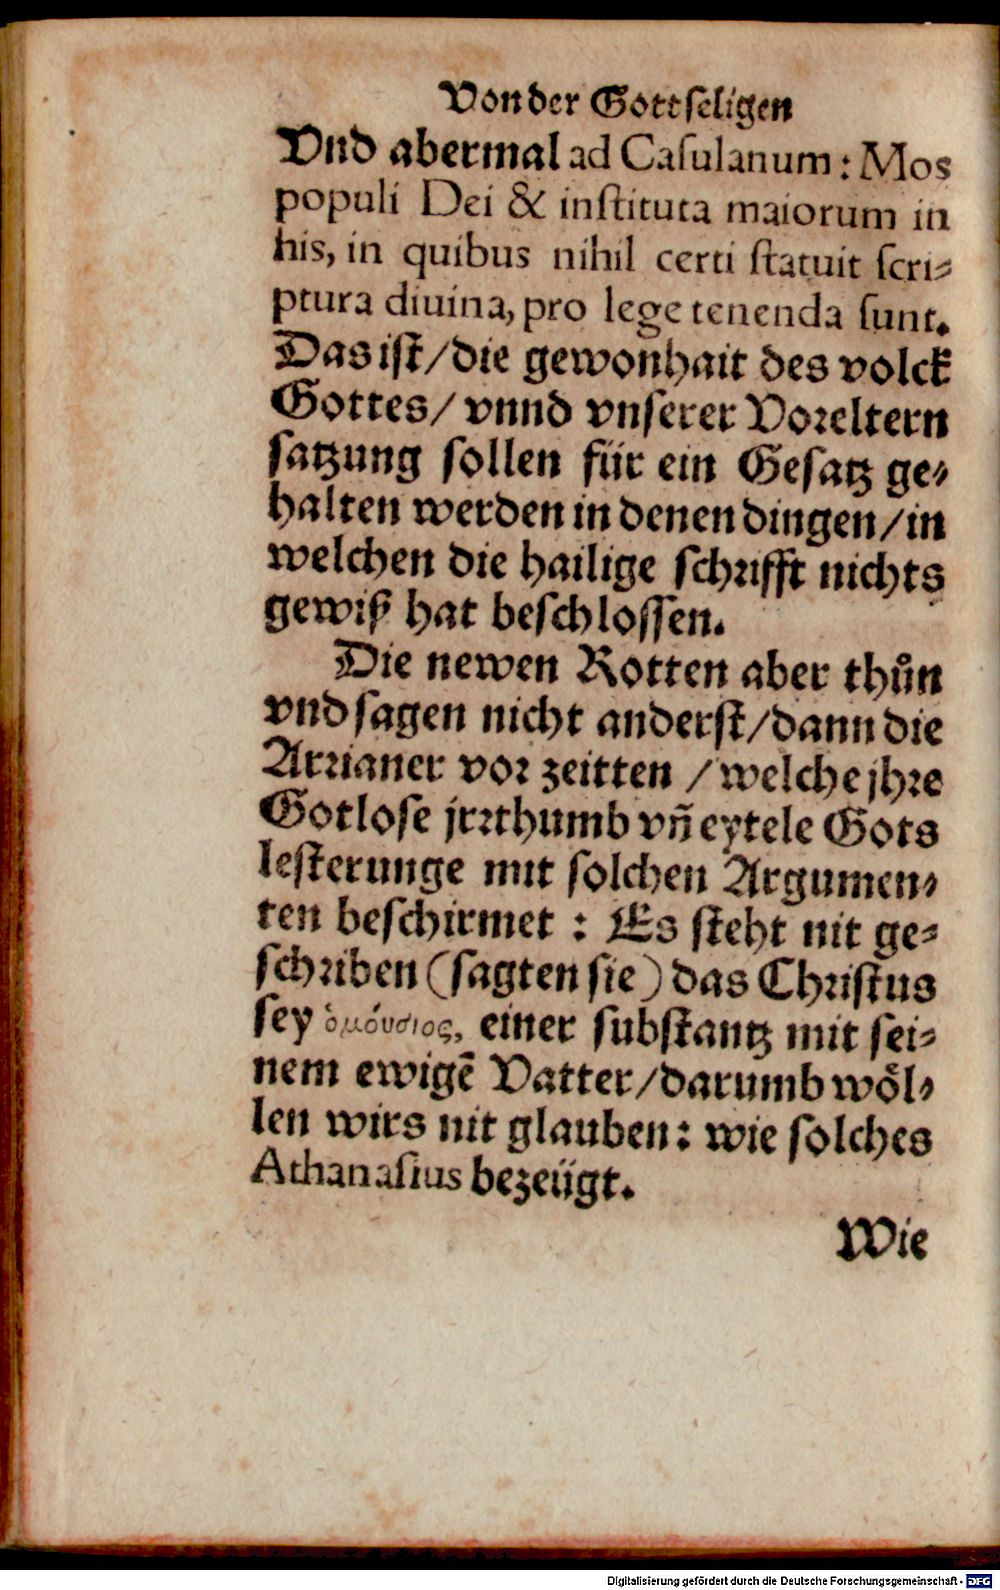 Von der Gottseligen
Vnd abermal ad Casulanum: Mos
populi Dei & instituta maiorum in
his, in quibus nihil certi statuit scri-
ptura diuina, pro lege tenenda sunt.
Das ist/die gewonhait des volck
Gottes/ vnnd vnserer Voreltern
satzung sollen für ein Gesatz ge-
halten werden in denen dingen/in
welchen die hailige schrifft nichts
gewiß hat beschlossen.
Die newen Rotten aber thůn
vnd sagen nicht anderst/dann die
Arrianer vor zeitten /welche jhre
Gotlose jrrthumb vñ eytele Gots
lesterunge mit solchen Argumen-
ten beschirmet : Es steht nit ge-
schriben (sagten sie) das Christus
sey ὁμόυσιος, einer substantz mit sei-
nem ewigē Vatter/darumb wöl-
len wirs nit glauben: wie solches
Athanasius bezeügt.
Wie
Digitalisierung gefördert durch die Deutsche Forschungsgemeinschaft - DFG